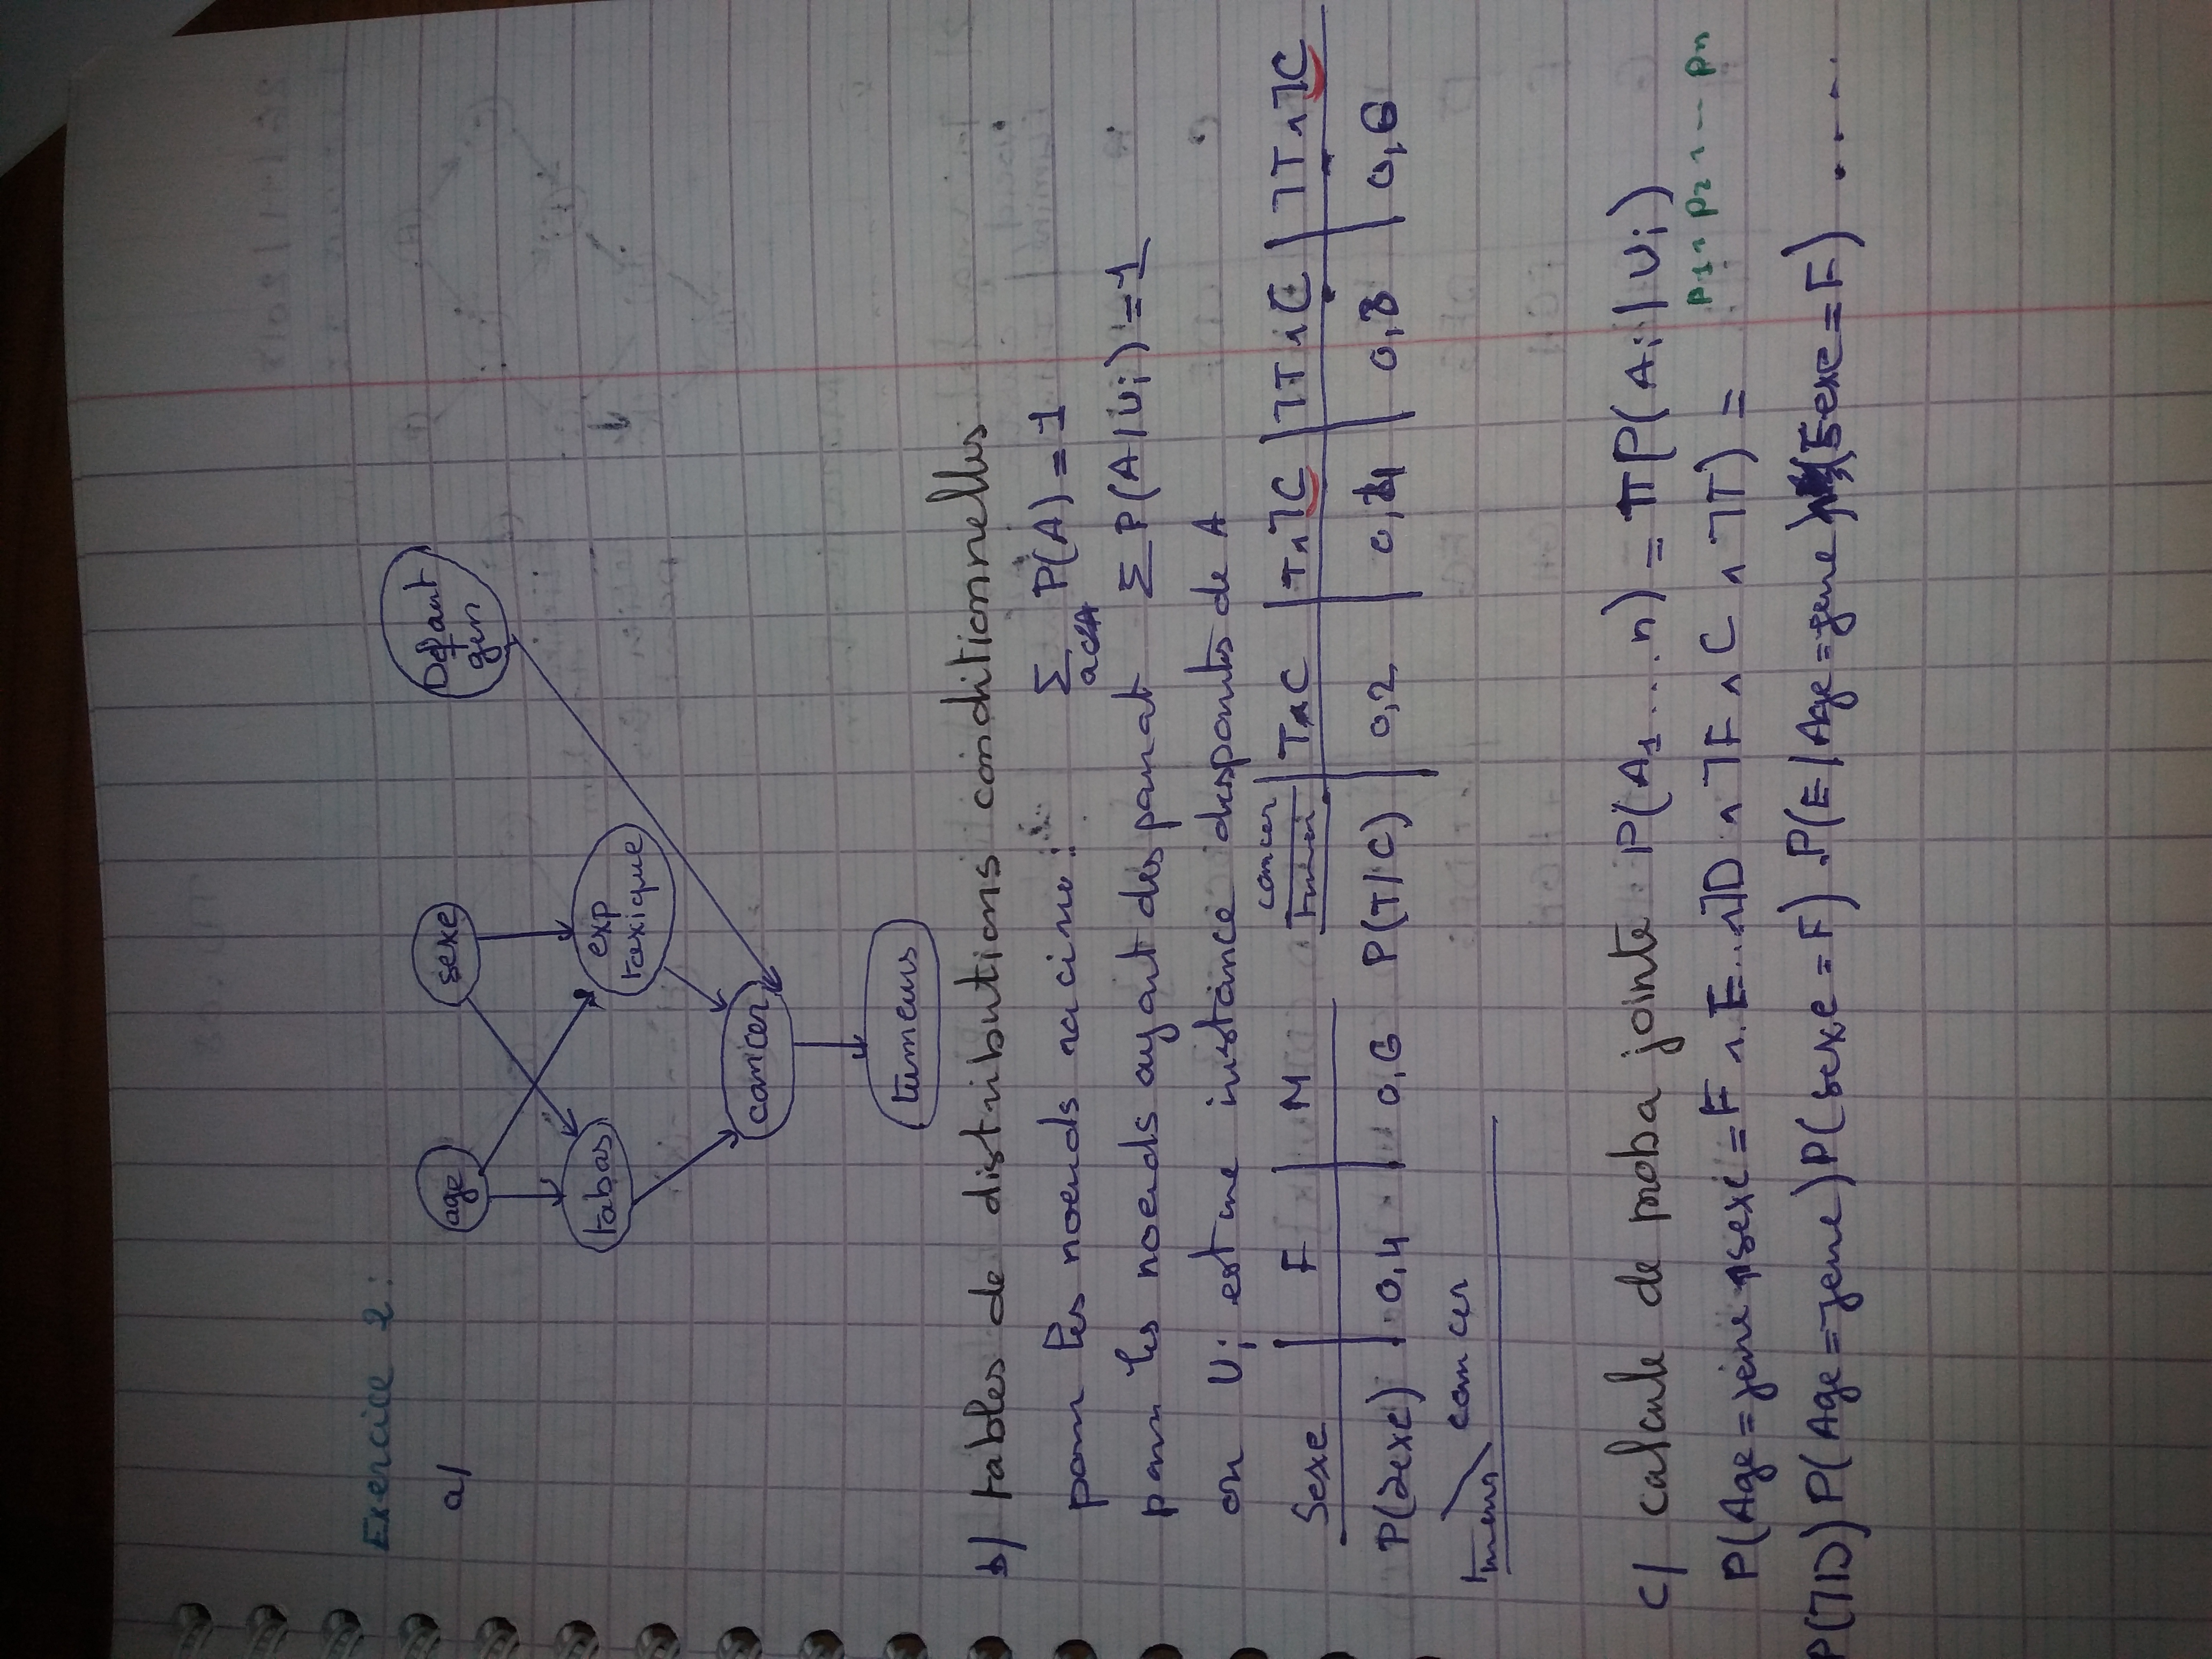 Exercice 2:
a/
age
sexe
Defaut
gen
tabas
exp
toxique
cancer
tumeurs
b/ tables de distributions conditionnelles
pour les noeuds racine: Σ P(A) = 1
pour les noeuds ayant des parat Σ P(A/Ui) = 1
ou Ui est une instance des parents de A
Sexe | F | M
P(sexe) | 0,4 | 0,6
cancer | T∧C | T∧¬C | ¬T∧C | ¬T∧¬C
P(T/C) | 0,2 | 0,4 | 0,8 | 0,6
tumeurs cancer
c/ calcule de proba jointe P(A1...n) = πP(Ai|Ui)
P1 ∧ P2 ∧ -- Pn
P(Age=jene ∧ sexe = F ∧ E..∧ ¬D ∧ ¬F ∧ C ∧ ¬T) =
P(¬D) P(Age=jene) P(sexe=F) . P(E/Age=jene (Sexe=F) .....